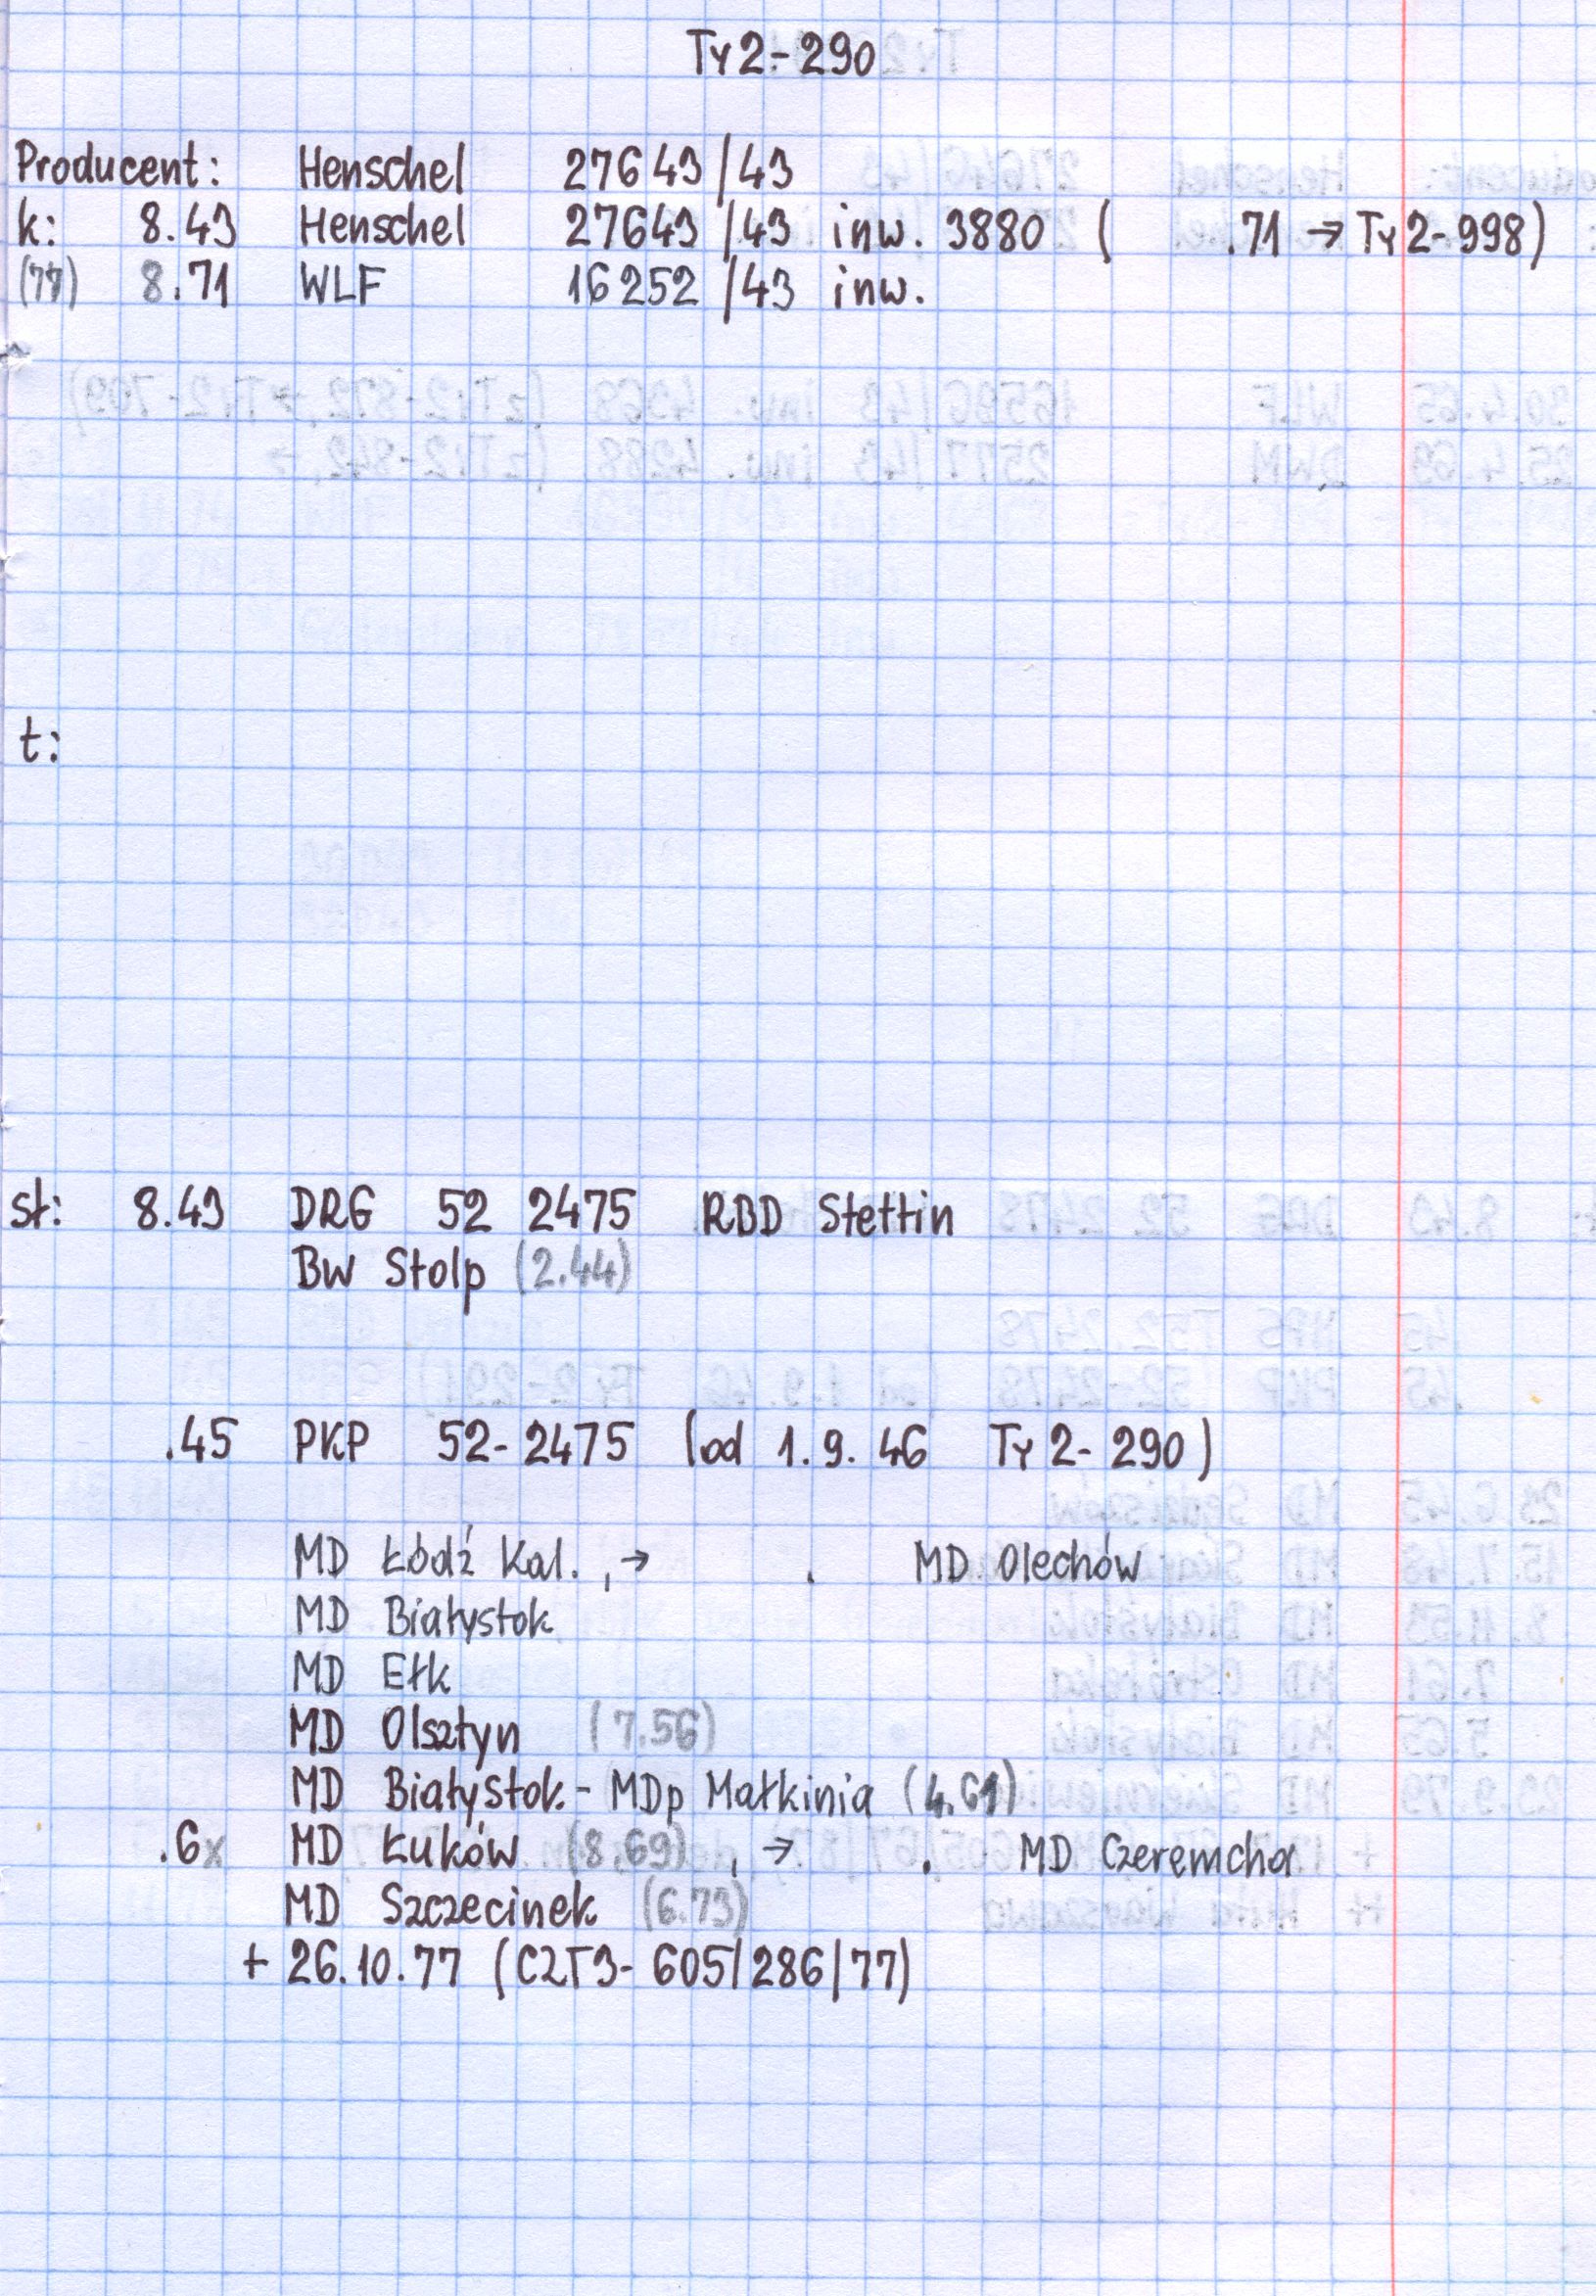 Ty2-290
Producent: Henschel 27643/43
k: 8.43 Henschel 27643/43 inw. 3880 ( .71 → Ty2-998)
(77) 8.71 WLF 16252/43 inw.
t:
st: 8.43 DRG 52 2475 RBD Stettin
Bw Stolp (2.44)
.45 PKP 52-2475 (od 1.9.46 Ty2-290)
MD Łódź Kal. , → . MD Olechów
MD Białystok
MD Ełk
MD Olsztyn (7.56)
MD Białystok - MDp Małkinia (4.61)
.6x MD Łuków (8.69) , → . MD Czeremcha
MD Szczecinek (6.73)
+ 26.10.77 (C2T3-605/286/77)